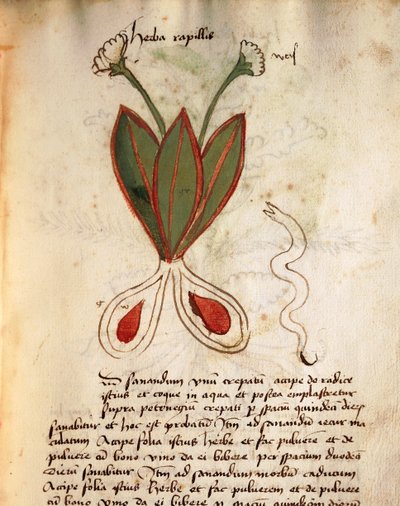 Herba rapillis
Ad sanandum vnū crepatū accipe de radice
istius et coque in aqua et postea emplastretur
supra petenegiū crepati p spaciū quindeci dieꝝ
sanabitur et hoc est probatū Itm ad sanandū iecur ma
culatum Accipe folia istius herbe et fac puluere et de
puluere cū bono vino da ei bibere per spacium duodeci
dierū sanabitur Itm ad sanandum morbū caducum
Accipe folia istius herbe et fac puluerem et de puluere
cū bono vino da ei bibere p spacium quindecim dierum